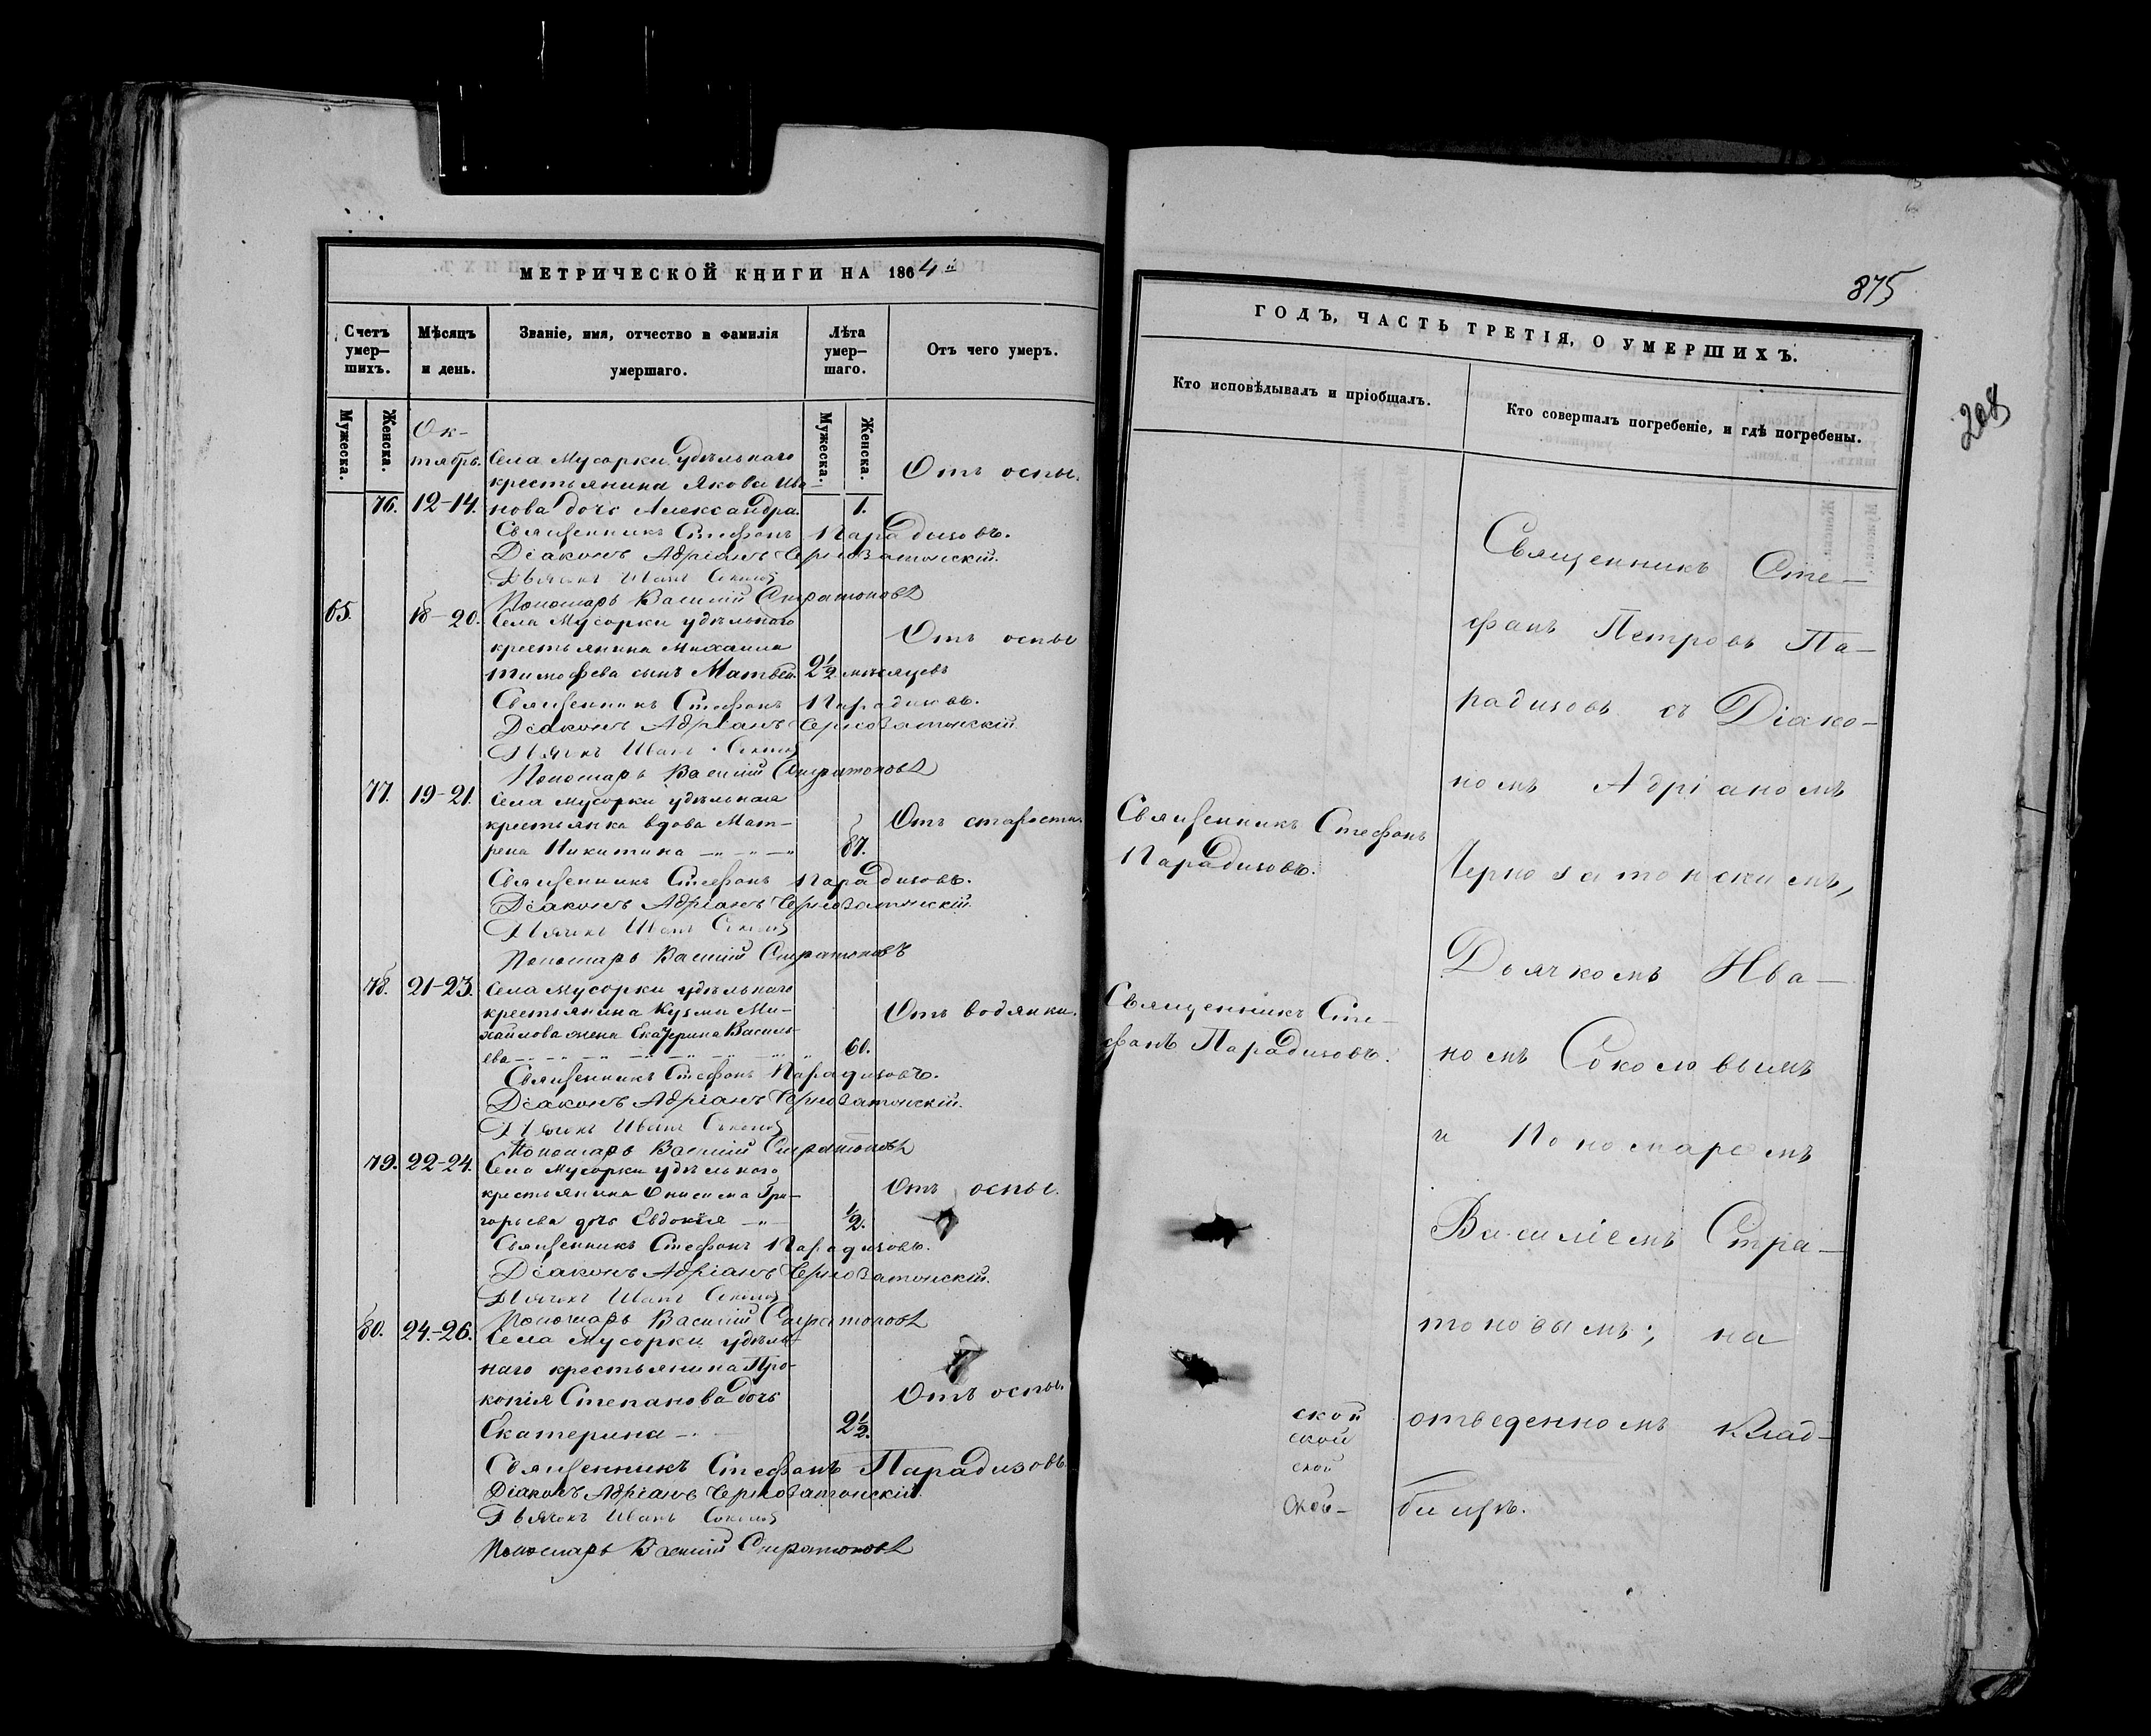 МЕТРИЧЕСКОЙ КНИГИ НА 1864й
Счетъ умер-
шихъ.
Мѣсяцъ
и день.
Званіе, имя, отчество и фамилія
умершаго.
Лѣта
умер-
шаго.
Отъ чего умеръ.
Мужеска.
Женска.
Мужеска.
Женска.
Ок-
тябрь.
Села Мусорки удѣльнаго
крестьянина Якова Ива-
76. 12-14. нова дочь Александра. 1.
Отъ оспы.
Священникъ Стефанъ Парадизовъ.
Діаконъ Адріанъ Чернозатонскій.
Дьячокъ Иванъ Соколов
Пономарь Василій Стратоновъ
65. 18-20. Села Мусорки удѣльнаго
крестьянина Михаила
Отъ оспы
Тимофева сынъ Матвѣй. 2½ мѣсяцевъ
Священникъ Стефанъ Парадизовъ.
Діаконъ Адріанъ Чернозатонскій.
Дьячокъ Иванъ Соколов
Пономарь Василій Стратоновъ
77. 19-21. Села Мусорки удѣльная
крестьянка вдова Мат-
Отъ старости.
рена Никитина 87.
Священникъ Стефанъ Парадизовъ.
Діаконъ Адріанъ Чернозатонскій.
Дьячокъ Иванъ Соколов
Пономарь Василій Стратоновъ
78. 21-23. Села Мусорки удѣльнаго
крестьянина Кузмы Ми-
Отъ водянки.
хайлова жена Екатерина Василь-
ева 60.
Священникъ Стефанъ Парадизовъ.
Діаконъ Адріанъ Чернозатонскій.
Дьячокъ Иванъ Соколов
Пономарь Василій Стратоновъ
79. 22-24. Села Мусорки удѣльнаго
крестьянина Онисима Гри-
Отъ оспы.
горьева дочь Евдокія ½.
Священникъ Стефанъ Парадизовъ.
Діаконъ Адріанъ Чернозатонскій.
Дьячокъ Иванъ Соколов
Пономарь Василій Стратоновъ
80. 24-26. Села Мусорки удѣль-
наго крестьянина Про-
копія Степанова дочь
Отъ оспы.
Екатерина 2½.
Священникъ Стефанъ Парадизовъ
Діаконъ Адріанъ Чернозатонскій.
Дьячокъ Иванъ Соколов
Пономарь Василій Стратоновъ
875
208
ГОДЪ, ЧАСТЬ ТРЕТІЯ, О УМЕРШИХЪ.
Кто исповѣдывалъ и пріобщалъ.
Кто совершалъ погребеніе, и гдѣ погребены.
Священникъ Стефанъ
Парадизовъ.
Священникъ Сте-
фанъ Парадизовъ.
ской
ской
ской
Ской-
Священникъ Сте-
фанъ Петровъ Па-
радизовъ съ Діако-
номъ Адріаномъ
Чернозатонскимъ,
Дьячкомъ Ива-
номъ Соколовымъ
и Пономаремъ
Василіемъ Стра-
тоновымъ; на
отведенномъ клад-
бищѣ.